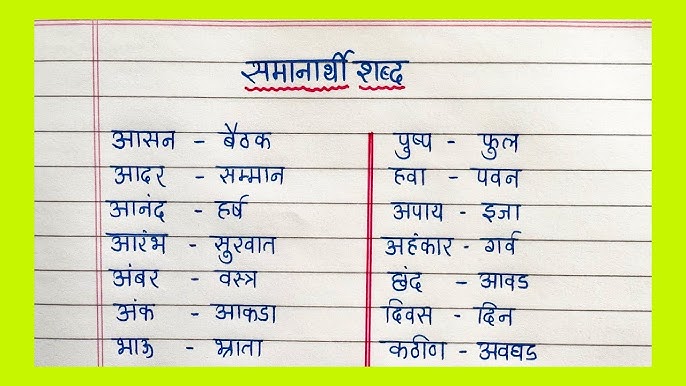 समानार्थी शब्द
आसन - बैठक
आदर - सम्मान
आनंद - हर्ष
आरंभ - सुरवात
अंबर - वस्त्र
अंक - आकडा
भाऊ - भ्राता
पुष्प - फुल
हवा - पवन
अपाय - इजा
अहंकार - गर्व
छंद - आवड
दिवस - दिन
कठीण - अवघड